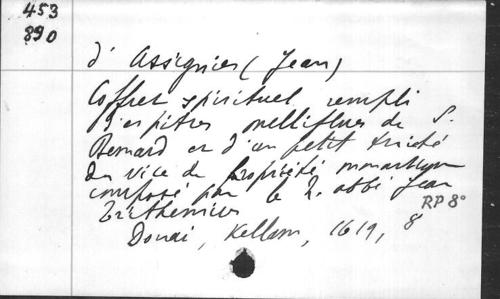 453
890
d'Assignies (Jean)
Coffret spirituel rempli
d'espitres melliflues de S.
Bernard et d'un petit traicté
du vice de propriété monastique
composé par le R. abbé Jean
Trithemius RP 8°
Douai, Kellam, 1619, 8